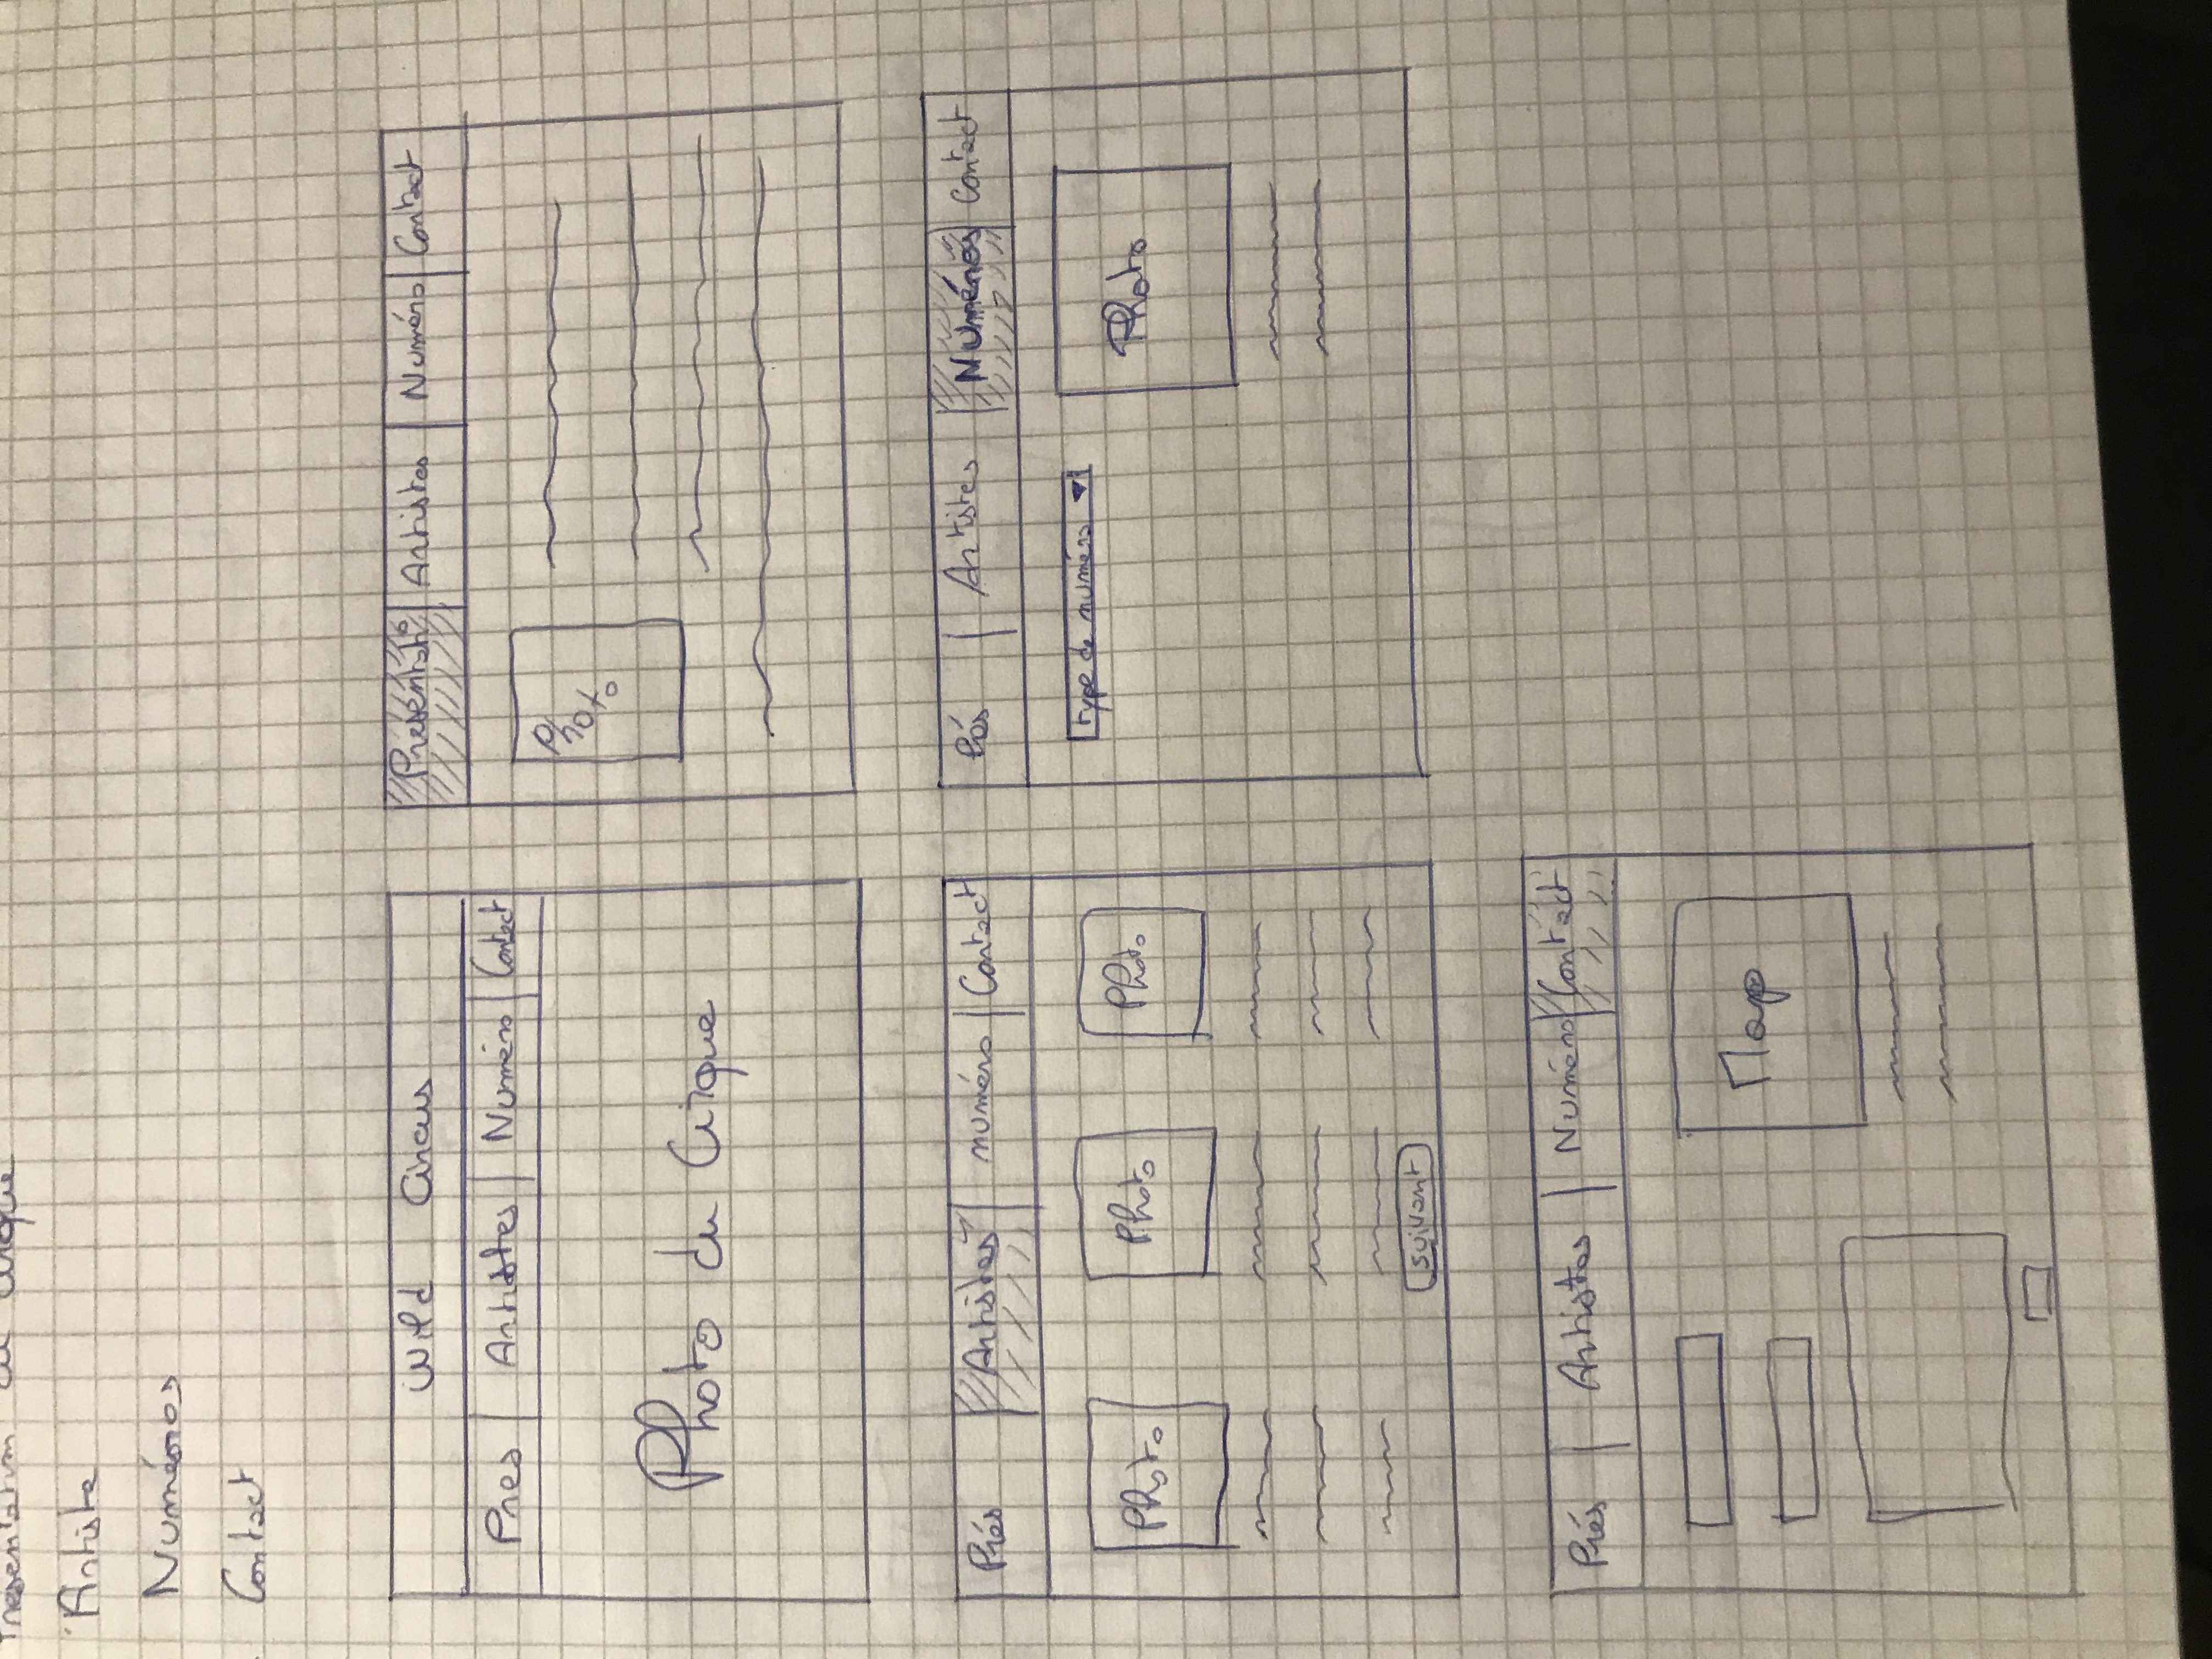 Presentation du cirque
Artiste
Numéros
Contact
Wild Circus
Pres Artistes Numéro Contact
Photo du Cirque
Présentat° Artistes Numéro Contact
Photo
Prés Artistes numéro Contact
Photo Photo Photo
suivant
Prés Artistes Numéros Contact
type de numéro
Photo
Prés Artistes Numéro Contact
Map